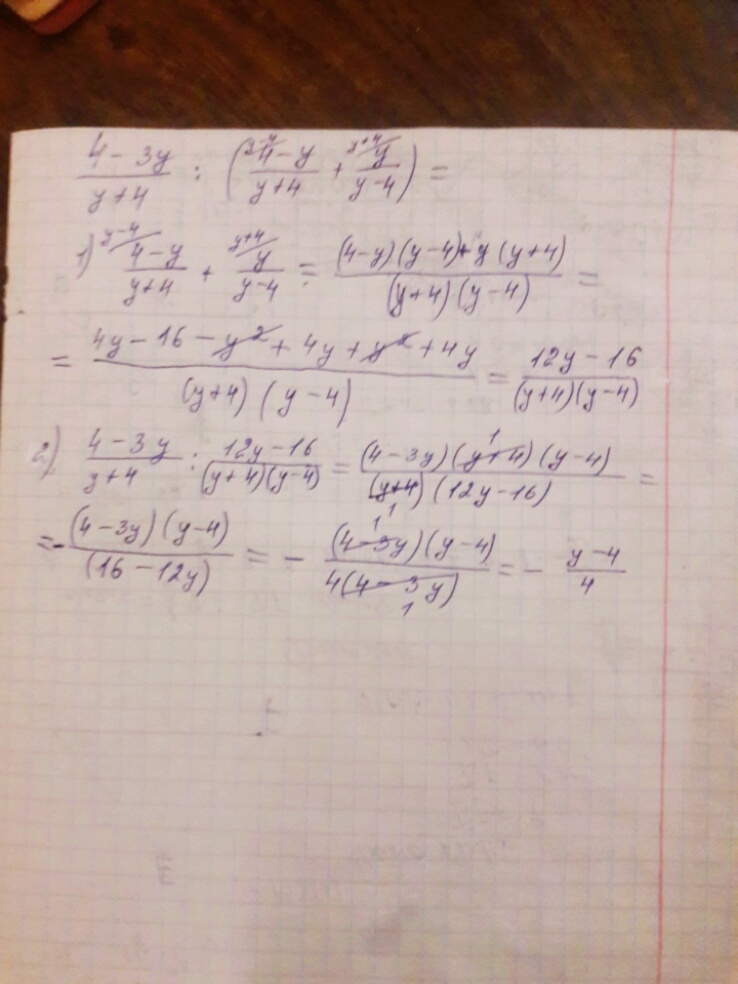 (4-3y)/(y+4) : ((4-y)/(y+4) + y/(y-4)) =
1) y-4 (4-y)/(y+4) + y+4 y/(y-4) = ((4-y)(y-4)+y(y+4))/((y+4)(y-4)) =
= (4y-16-y²+4y+y²+4y)/((y+4)(y-4)) = (12y-16)/((y+4)(y-4))
2) (4-3y)/(y+4) : (12y-16)/((y+4)(y-4)) = ((4-3y)(y+4)(y-4))/((y+4)(12y-16)) =
= -((4-3y)(y-4))/(16-12y) = -((4-3y)(y-4))/(4(4-3y)) = -(y-4)/4